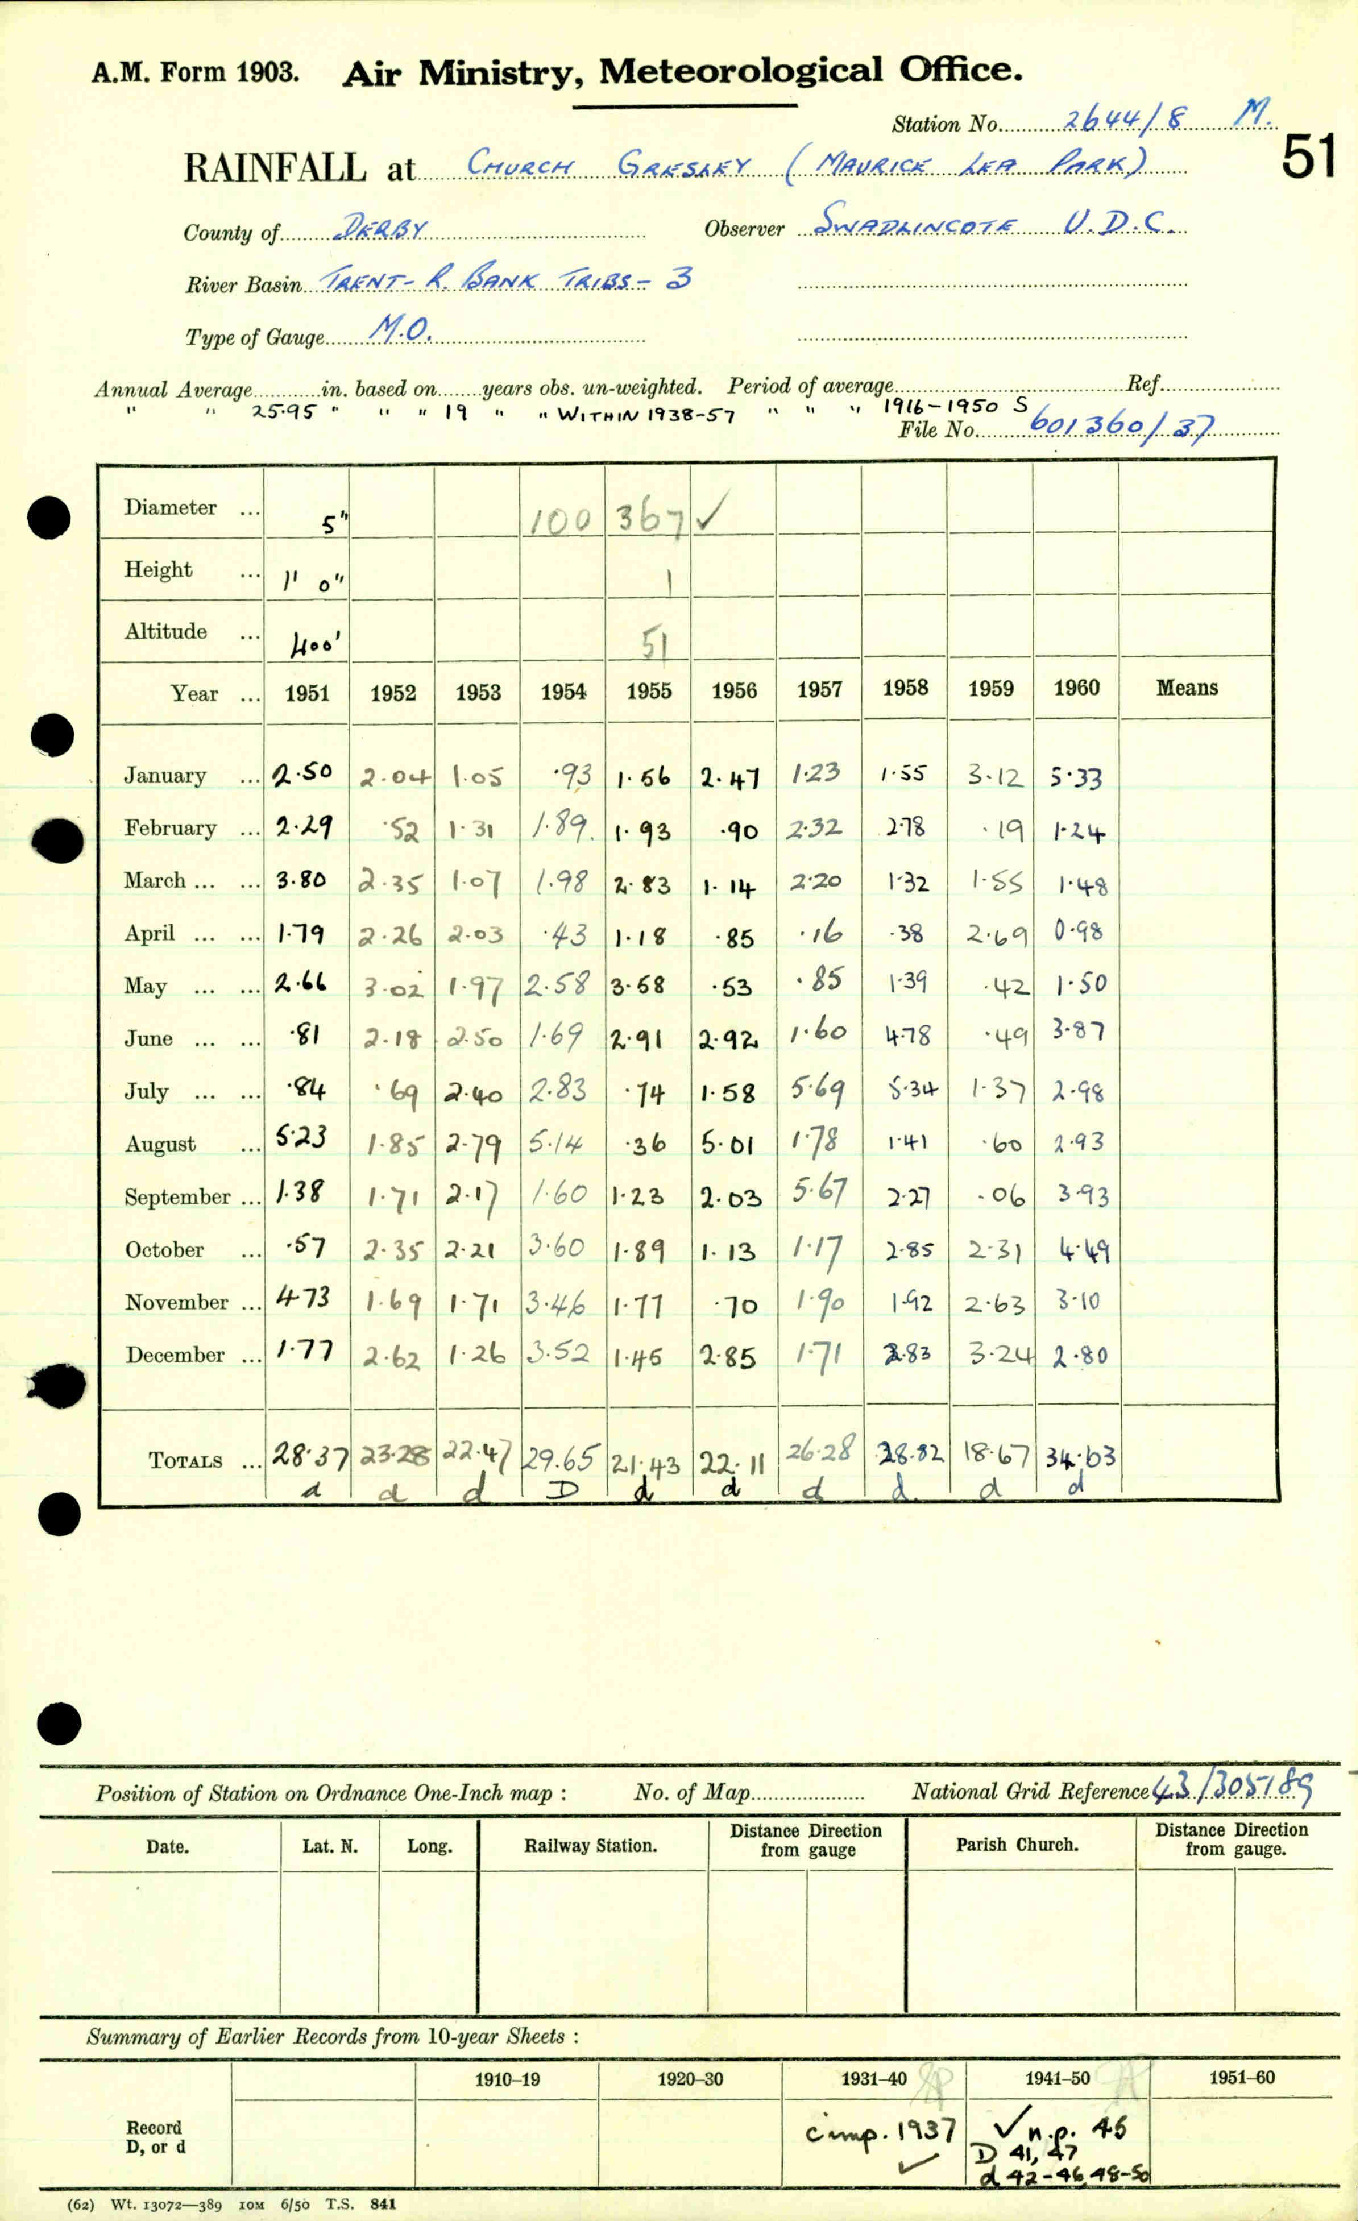 A.M. Form 1903. Air Ministry, Meteorological Office.
Station No. 2644/8 M.
51
RAINFALL at CHURCH GRESLEY (MAURICE LEA PARK)
County of DERBY Observer SWADLINCOTE U.D.C.
River Basin TRENT - R. BANK TRIBS - 3
Type of Gauge M.O.
Annual Average in. based on years obs. un-weighted. Period of average Ref.
" " 25.95 " " " 19 " " WITHIN 1938-57 " " " 1916-1950 S
File No. 601360/37
Diameter ... 5" 100 367 ✓
Height ... 1' 0" 1
Altitude ... 400' 51
Year ... 1951 1952 1953 1954 1955 1956 1957 1958 1959 1960 Means
January ... 2.50 2.04 1.05 .93 1.56 2.47 1.23 1.55 3.12 5.33
February ... 2.29 .52 1.31 1.89 1.93 .90 2.32 2.78 .19 1.24
March ... ... 3.80 2.35 1.07 1.98 2.83 1.14 2.20 1.32 1.55 1.48
April ... ... 1.79 2.26 2.03 .43 1.18 .85 .16 .38 2.69 0.98
May ... ... 2.66 3.02 1.97 2.58 3.58 .53 .85 1.39 .42 1.50
June ... ... .81 2.18 2.50 1.69 2.91 2.92 1.60 4.78 .49 3.87
July ... ... .84 .69 2.40 2.83 .74 1.58 5.69 5.34 1.37 2.98
August ... 5.23 1.85 2.79 5.14 .36 5.01 1.78 1.41 .60 2.93
September ... 1.38 1.71 2.17 1.60 1.23 2.03 5.67 2.27 .06 3.93
October ... .57 2.35 2.21 3.60 1.89 1.13 1.17 2.85 2.31 4.49
November ... 4.73 1.69 1.71 3.46 1.77 .70 1.90 1.92 2.63 3.10
December ... 1.77 2.62 1.26 3.52 1.45 2.85 1.71 2.83 3.24 2.80
TOTALS ... 28.37 23.28 22.47 29.65 21.43 22.11 26.28 28.82 18.67 34.63
d d d D d d d d d d
Position of Station on Ordnance One-Inch map : No. of Map National Grid Reference 43/305189
Date. Lat. N. Long. Railway Station. Distance from gauge Direction Parish Church. Distance from gauge. Direction
Summary of Earlier Records from 10-year Sheets :
1910-19 1920-30 1931-40 1941-50 1951-60
Record D, or d cimp. 1937 ✓ ✓ n.p. 45
D 41, 47
d 42-46, 48-50
(62) Wt. 13072—389 10M 6/50 T.S. 841